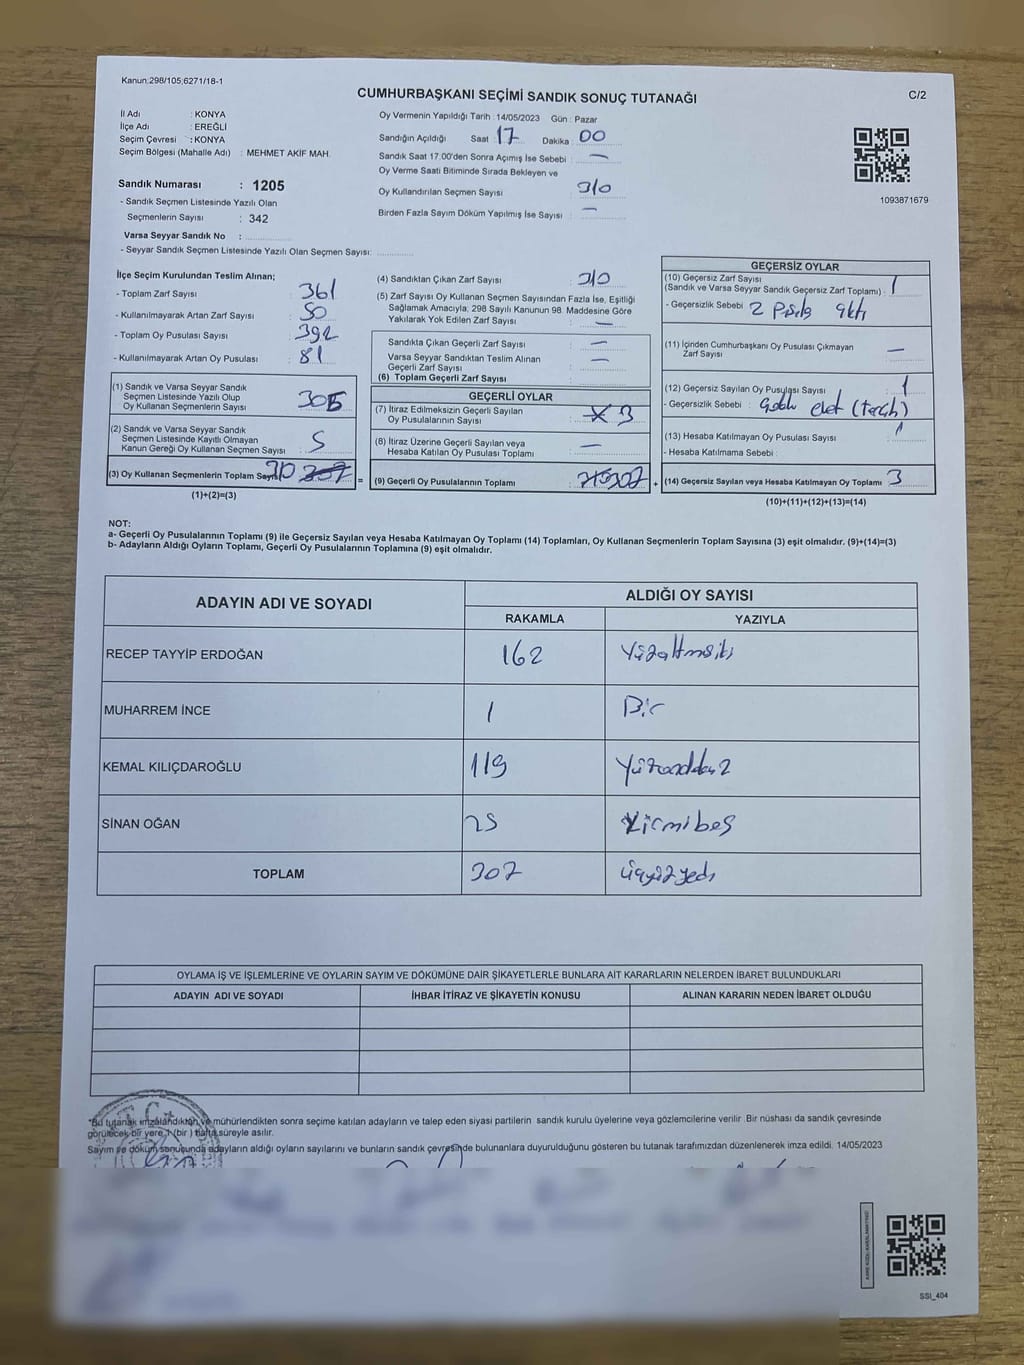 Kanun:298/105;6271/18-1
CUMHURBAŞKANI SEÇİMİ SANDIK SONUÇ TUTANAĞI
C/2
İl Adı : KONYA
İlçe Adı : EREĞLİ
Seçim Çevresi : KONYA
Seçim Bölgesi (Mahalle Adı) : MEHMET AKİF MAH.
Sandık Numarası : 1205
- Sandık Seçmen Listesinde Yazılı Olan
Seçmenlerin Sayısı : 342
Varsa Seyyar Sandık No :
- Seyyar Sandık Seçmen Listesinde Yazılı Olan Seçmen Sayısı:
Oy Vermenin Yapıldığı Tarih : 14/05/2023 Gün : Pazar
Sandığın Açıldığı Saat : 17 Dakika : 00
Sandık Saat 17.00'den Sonra Açımış İse Sebebi : —
Oy Verme Saati Bitiminde Sırada Bekleyen ve
Oy Kullandırılan Seçmen Sayısı : 310
Birden Fazla Sayım Döküm Yapılmış İse Sayısı : —
1093871679
İlçe Seçim Kurulundan Teslim Alınan;
- Toplam Zarf Sayısı : 361
- Kullanılmayarak Artan Zarf Sayısı : 50
- Toplam Oy Pusulası Sayısı : 392
- Kullanılmayarak Artan Oy Pusulası : 81
(1) Sandık ve Varsa Seyyar Sandık
Seçmen Listesinde Yazılı Olup
Oy Kullanan Seçmenlerin Sayısı : 305
(2) Sandık ve Varsa Seyyar Sandık
Seçmen Listesinde Kayıtlı Olmayan
Kanun Gereği Oy Kullanan Seçmen Sayısı : 5
(3) Oy Kullanan Seçmenlerin Toplam Sayısı 310 307
(1)+(2)=(3)
(4) Sandıktan Çıkan Zarf Sayısı : 310
(5) Zarf Sayısı Oy Kullanan Seçmen Sayısından Fazla İse, Eşitliği
Sağlamak Amacıyla, 298 Sayılı Kanunun 98. Maddesine Göre
Yakılarak Yok Edilen Zarf Sayısı : —
Sandıkta Çıkan Geçerli Zarf Sayısı : —
Varsa Seyyar Sandıktan Teslim Alınan
Geçerli Zarf Sayısı : —
(6) Toplam Geçerli Zarf Sayısı :
GEÇERLİ OYLAR
(7) İtiraz Edilmeksizin Geçerli Sayılan
Oy Pusulalarının Sayısı : 3
(8) İtiraz Üzerine Geçerli Sayılan veya
Hesaba Katılan Oy Pusulası Toplamı : —
(9) Geçerli Oy Pusulalarının Toplamı : 307
GEÇERSİZ OYLAR
(10) Geçersiz Zarf Sayısı
(Sandık ve Varsa Seyyar Sandık Geçersiz Zarf Toplamı) : 1
- Geçersizlik Sebebi : 2
(11) İçinden Cumhurbaşkanı Oy Pusulası Çıkmayan
Zarf Sayısı : —
(12) Geçersiz Sayılan Oy Pusulası Sayısı : 1
- Geçersizlik Sebebi :
(13) Hesaba Katılmayan Oy Pusulası Sayısı : 1
- Hesaba Katılmama Sebebi :
(14) Geçersiz Sayılan veya Hesaba Katılmayan Oy Toplamı : 3
(10)+(11)+(12)+(13)=(14)
NOT:
a- Geçerli Oy Pusulalarının Toplamı (9) ile Geçersiz Sayılan veya Hesaba Katılmayan Oy Toplamı (14) Toplamları, Oy Kullanan Seçmenlerin Toplam Sayısına (3) eşit olmalıdır. (9)+(14)=(3)
b- Adayların Aldığı Oyların Toplamı, Geçerli Oy Pusulalarının Toplamına (9) eşit olmalıdır.
ADAYIN ADI VE SOYADI
ALDIĞI OY SAYISI
RAKAMLA YAZIYLA
RECEP TAYYİP ERDOĞAN 162 Yüzaltmışiki
MUHARREM İNCE 1 Bir
KEMAL KILIÇDAROĞLU 119 Yüzondokuz
SİNAN OĞAN 25 Yirmibeş
TOPLAM 307 üçyüzyedi
OYLAMA İŞ VE İŞLEMLERİNE VE OYLARIN SAYIM VE DÖKÜMÜNE DAİR ŞİKAYETLERLE BUNLARA AİT KARARLARIN NELERDEN İBARET BULUNDUKLARI
ADAYIN ADI VE SOYADI İHBAR İTİRAZ VE ŞİKAYETİN KONUSU ALINAN KARARIN NEDEN İBARET OLDUĞU
*Bu tutanak imzalandıktan ve mühürlendikten sonra seçime katılan adayların ve talep eden siyasi partilerin sandık kurulu üyelerine veya gözlemcilerine verilir. Bir nüshası da sandık çevresinde
görülecek bir yere 1 (bir) hafta süreyle asılır.
Sayım ve döküm sonucunda adayların aldığı oyların sayılarını ve bunların sandık çevresinde bulunanlara duyurulduğunu gösteren bu tutanak tarafımızdan düzenlenerek imza edildi. 14/05/2023
SSI_404